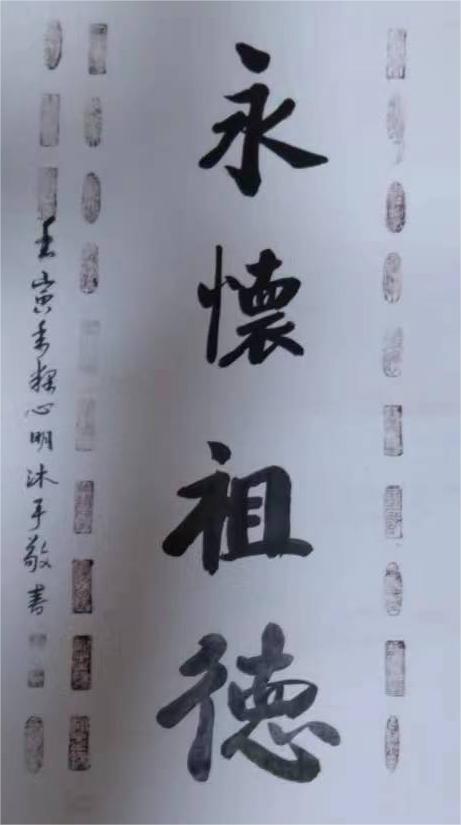 永懷祖德
壬寅心明沐手敬書